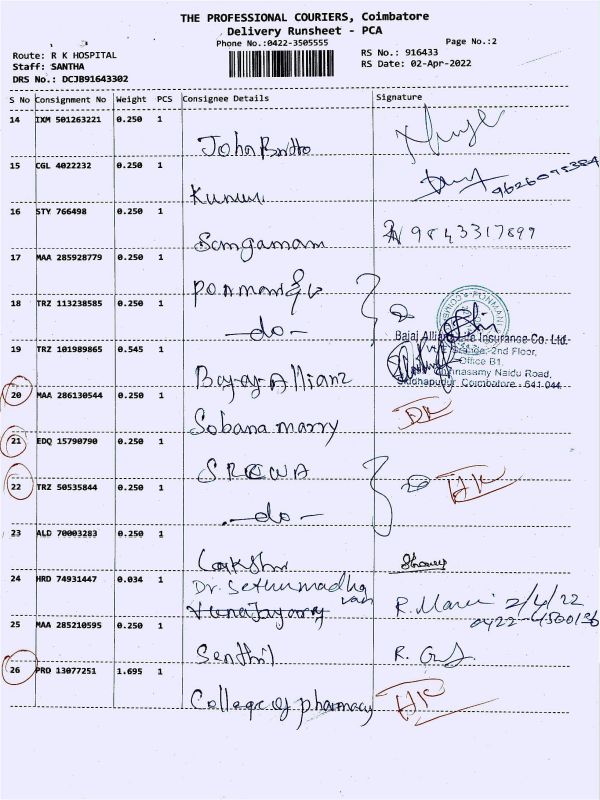 THE PROFESSIONAL COURIERS, Coimbatore
Delivery Runsheet - PCA
Phone No.:0422-3505555
Page No.:2
Route: R K HOSPITAL
RS No.: 916433
Staff: SANTHA
RS Date: 02-Apr-2022
DRS No.: DCJB91643302
S No Consignment No Weight PCS Consignee Details Signature
14 IXM 501263221 0.250 1
John Britto
15 CGL 4022232 0.250 1
9626075384
Kumar
16 STY 766498 0.250 1
9843317899
Samgamam
17 MAA 285928779 0.250 1
Ponmani
18 TRZ 113238585 0.250 1
-do-
Bajaj Allianz Life Insurance Co. Ltd.
19 TRZ 101989865 0.545 1
2nd Floor,
Office B1,
Chinnasamy Naidu Road,
Bajaj Allianz
Siddhapudur, Coimbatore - 641 044.
20 MAA 286130544 0.250 1
Sobana marry
21 EDQ 15790790 0.250 1
22 TRZ 50535844 0.250 1
-do-
23 ALD 70003283 0.250 1
Lakshmi
24 HRD 74931447 0.034 1
Dr. Sethumadha
van
R. Mani 2/4/22
25 MAA 285210595 0.250 1
Senthil
26 PRO 13077251 1.695 1
College of pharmacy